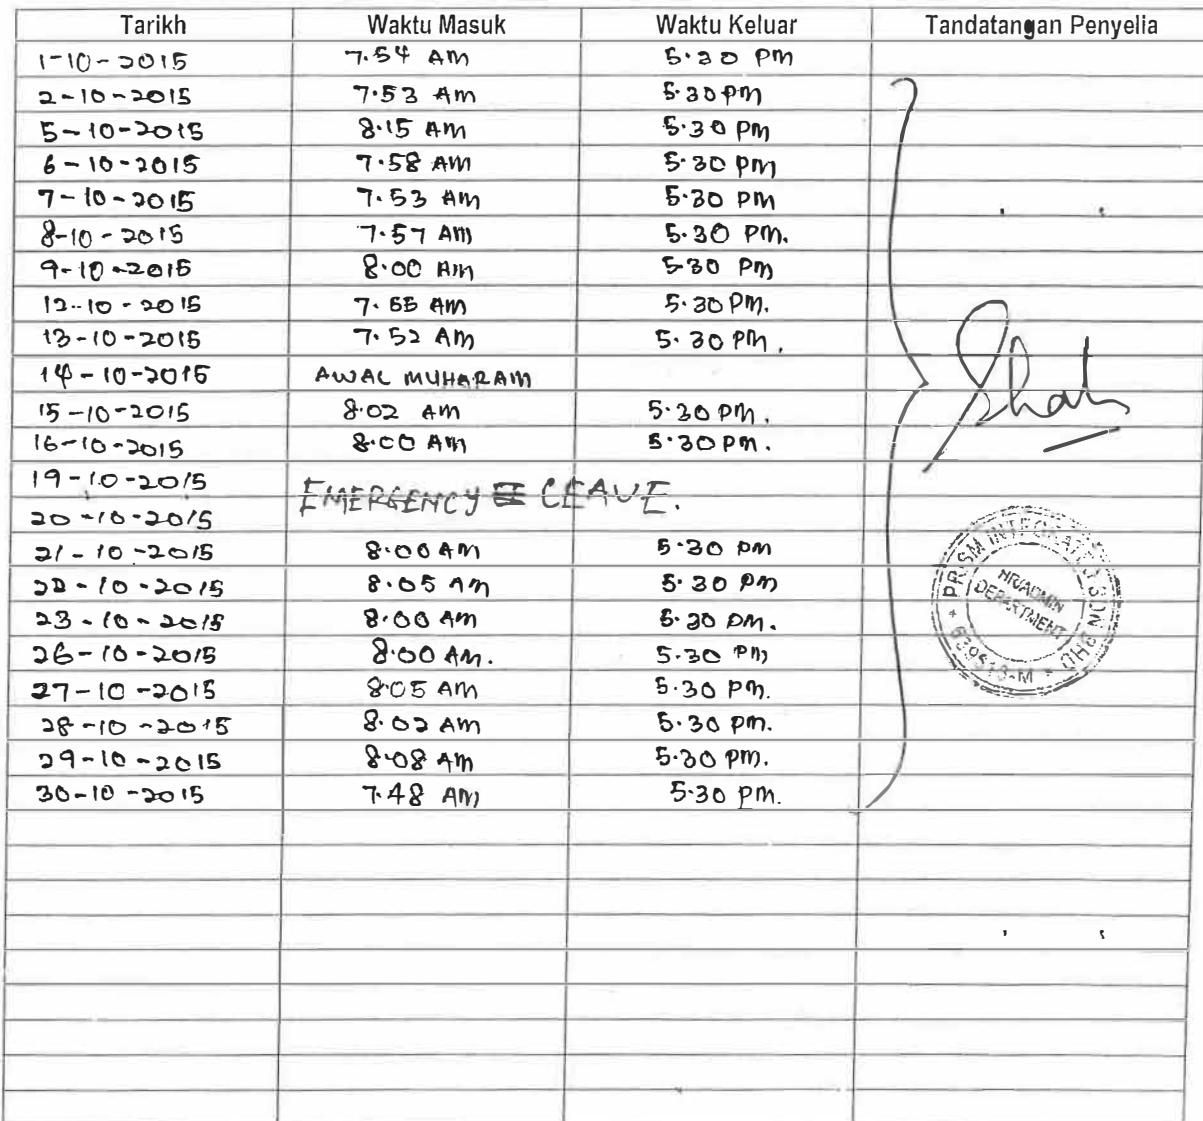 Tarikh Waktu Masuk Waktu Keluar Tandatangan Penyelia
1-10-2015 7.54 AM 5.30 PM
2-10-2015 7.53 AM 5.30 PM
5-10-2015 8.15 AM 5.30 PM
6-10-2015 7.58 AM 5.30 PM
7-10-2015 7.53 AM 5.30 PM
8-10-2015 7.57 AM 5.30 PM.
9-10-2015 8.00 AM 5.30 PM
12-10-2015 7.55 AM 5.30 PM.
13-10-2015 7.52 AM 5.30 PM.
14-10-2015 AWAL MUHARAM
15-10-2015 8.02 AM 5.30 PM.
16-10-2015 8.00 AM 5.30 PM.
19-10-2015
EMERGENCY LEAVE.
20-10-2015
21-10-2015 8.00 AM 5.30 PM
22-10-2015 8.05 AM 5.30 PM
23-10-2015 8.00 AM 5.30 PM.
26-10-2015 8.00 AM. 5.30 PM
27-10-2015 8.05 AM 5.30 PM.
28-10-2015 8.02 AM 5.30 PM.
29-10-2015 8.08 AM 5.30 PM.
30-10-2015 7.48 AM 5.30 PM.
PRISM INTEGRATED SDN BHD
HR/ADMIN
DEPARTMENT